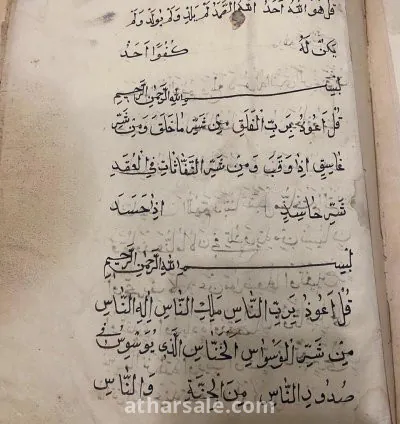 قُلْ هُوَ اللهُ اَحَدٌ اللهُ الصَّمَدُ لَمْ يَلِدْ وَلَمْ يُولَدْ وَلَمْ
يَكُنْ لَهُ كُفُوًا اَحَدٌ
بِسْمِ اللهِ الرَّحْمٰنِ الرَّحِيمِ
قُلْ اَعُوذُ بِرَبِّ الْفَلَقِ مِنْ شَرِّ مَا خَلَقَ وَمِنْ شَرِّ
غَاسِقٍ اِذَا وَقَبَ وَمِنْ شَرِّ النَّفَّاثَاتِ فِي الْعُقَدِ
شَرِّ حَاسِدٍ اِذَا حَسَدَ
بِسْمِ اللهِ الرَّحْمٰنِ الرَّحِيمِ
قُلْ اَعُوذُ بِرَبِّ النَّاسِ مَلِكِ النَّاسِ اِلٰهِ النَّاسِ
مِنْ شَرِّ الْوَسْوَاسِ الْخَنَّاسِ الَّذِي يُوَسْوِسُ فِي
صُدُورِ النَّاسِ مِنَ الْجِنَّةِ وَالنَّاسِ
atharsale.com